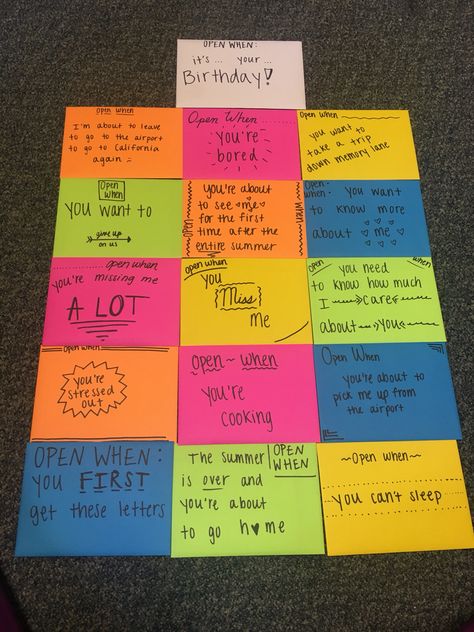 OPEN WHEN:
it's... your...
Birthday!
Open When
I'm about to leave
to go to the airport
to go to California
again :(
Open When
you're
bored
Open When
you want to
take a trip
down memory lane
Open
When
you want to
give up
on us
Open
When
you're about
to see me
for the first
time after the
entire summer
Open
When
you want
to know more
about me
open when
you're missing me
A LOT
open when
you
Miss
me
open
when
you need
to know how much
I care
about you
open when
you're
stressed
out
Open when
you're
cooking
Open When
you're about to
pick me up from
the airport
OPEN WHEN:
you FIRST
get these letters
OPEN
WHEN
The summer
is over and
you're about
to go h♥me
~Open when~
you can't sleep